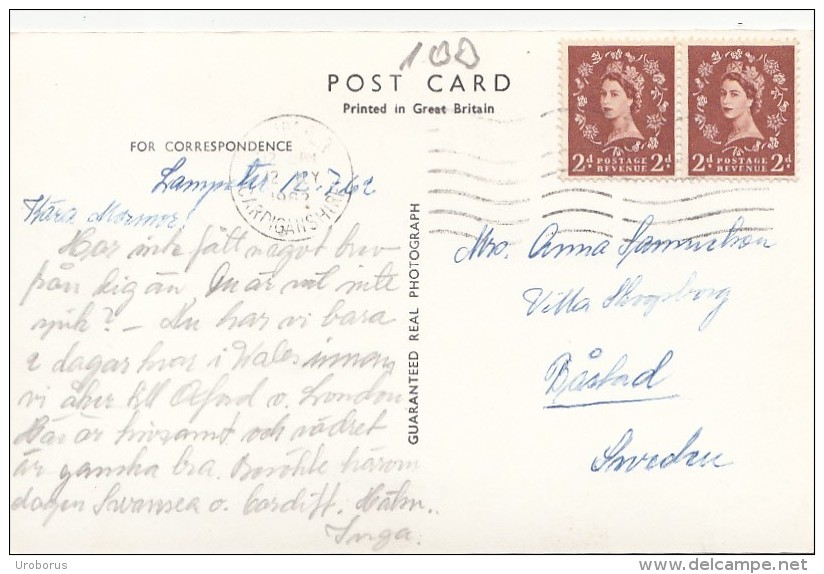 100
POST CARD
Printed in Great Britain
FOR CORRESPONDENCE
Lampeter 12.7.62
Kära Mormor,
Har inte fått något brev
från dig än. Du är väl inte
sjuk? – Nu har vi bara
2 dagar kvar i Wales innan
vi åker till Oxford o. London
Här är hivsamt och vädret
är ganska bra. Besökte härom
dagen Swansea o. Cardiff. Hälsn.
Inga.
GUARANTEED REAL PHOTOGRAPH
CARDIGANSHIRE
2d POSTAGE REVENUE 2d
2d POSTAGE REVENUE 2d
Mrs. Anna Samuelson
Villa Skogsborg
Båstad
Sweden
Uroborus
delcampe.net